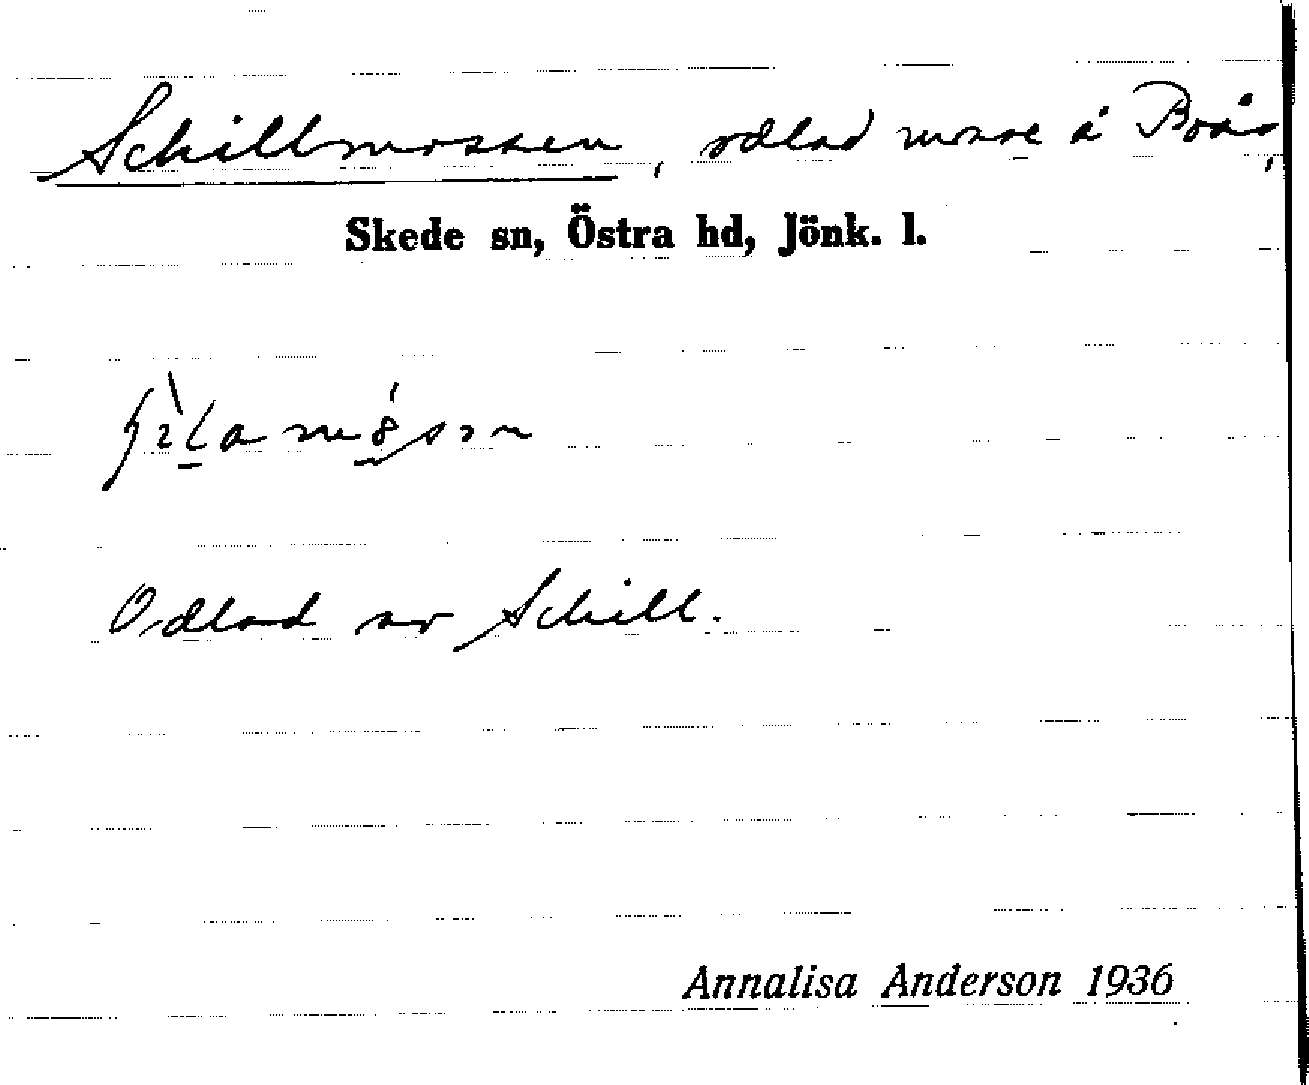 Schillmossen, odlad mosse å Boås,
Skede sn, Östra hd, Jönk. l.
Odlad av Schill.
Annalisa Anderson 1936